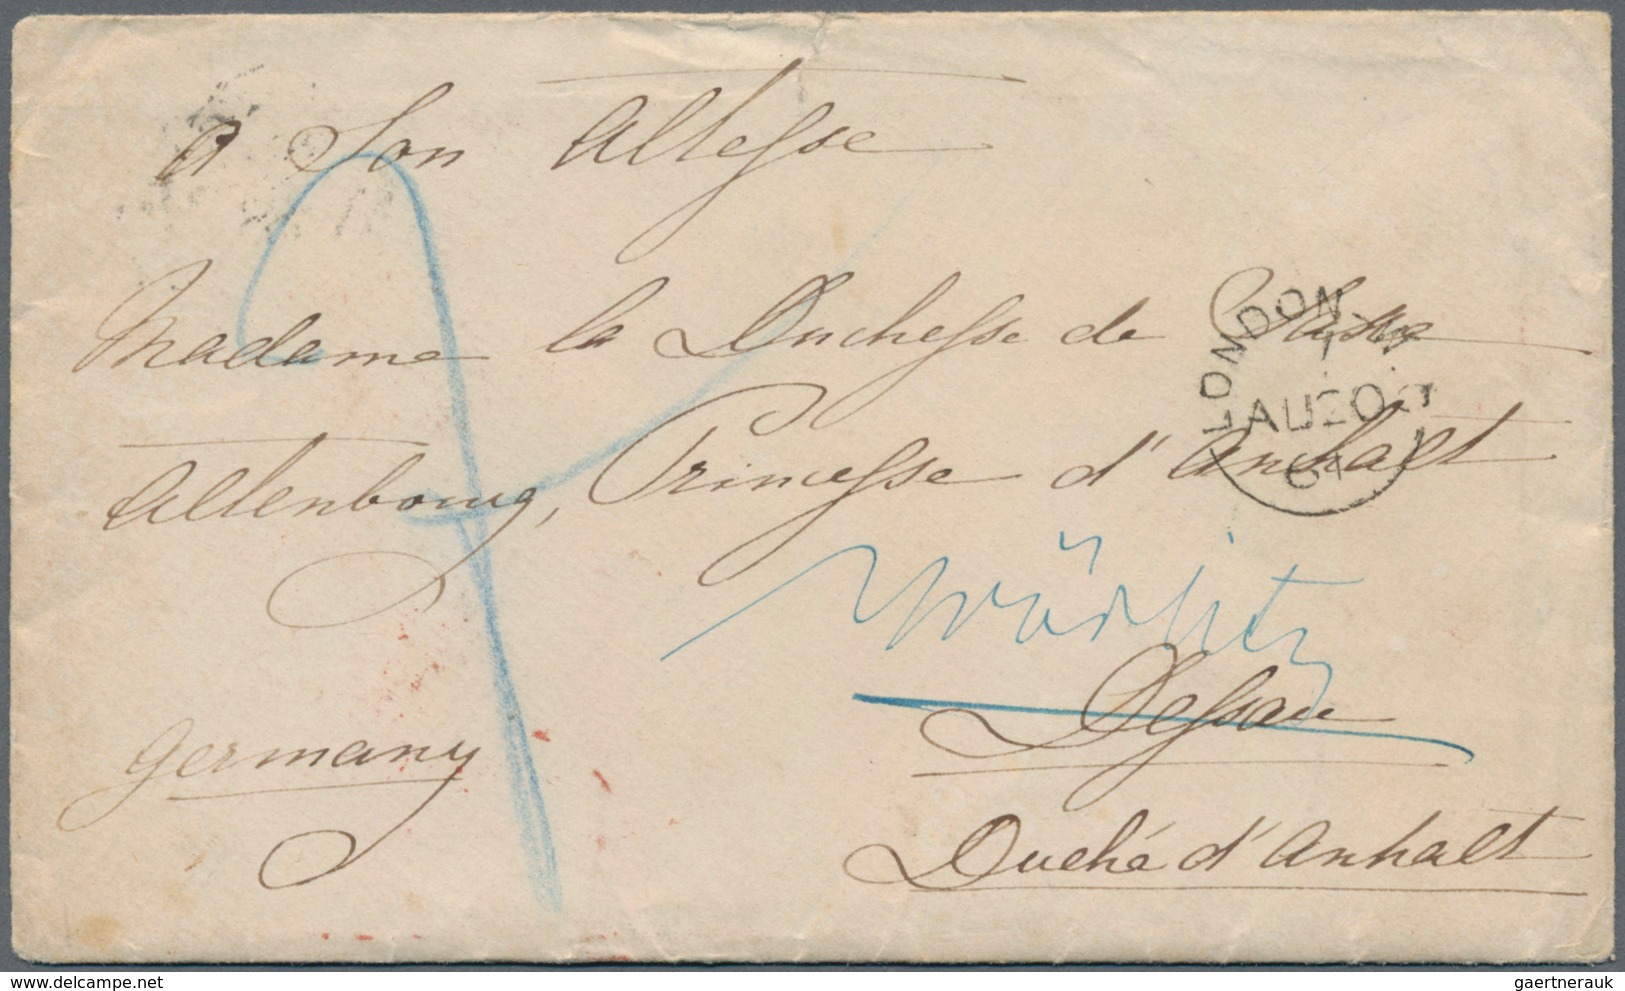 A Son Altesse
Madame la Duchesse de Saxe
Altenbourg, Princesse d'Anhalt
Wörlitz
Dessau
Germany
Duché d'Anhalt
LONDON
AU 20
7
delcampe.net
gaertnerauk